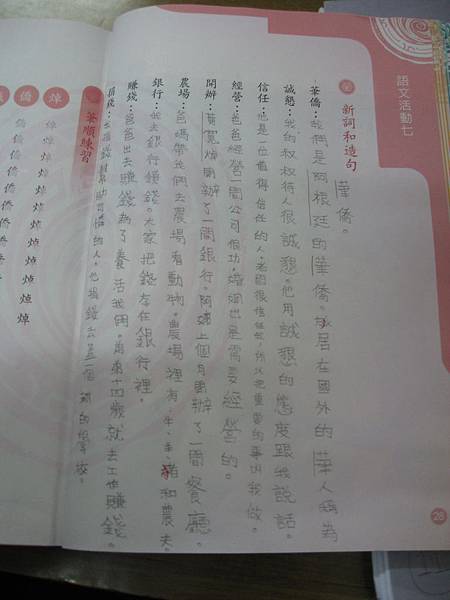 語文活動七
新詞和造句
華僑。
華僑：我們是阿根廷的華僑。居在國外的華人稱為
誠懇：我的叔叔待人很誠懇。他用誠懇的態度跟我說話。
信任：他是一位值得信任的人。老闆很信任爸爸，所以把重要的事由我做。
經營：爸爸經營一間公司很成功，婚姻也是需要經營的。
開辦：黃寬焯開辦了一間銀行。阿姨上個月開辦了一間餐廳。
農場：爸媽帶我們去農場看動物。農場裡有，牛、羊、豬和農夫。
銀行：我去銀行換錢。大家把錢存在銀行裡。
賺錢：爸爸出去賺錢為了養活我們。弟弟十四歲就去工作賺錢。
捐錢：去捐錢幫助可憐的人。他捐錢去蓋一個新的學校。
筆順練習
僑 焯
僑 僑 僑 僑 僑 僑 僑
焯 焯 焯 焯 焯 焯 焯 焯 焯 焯
28